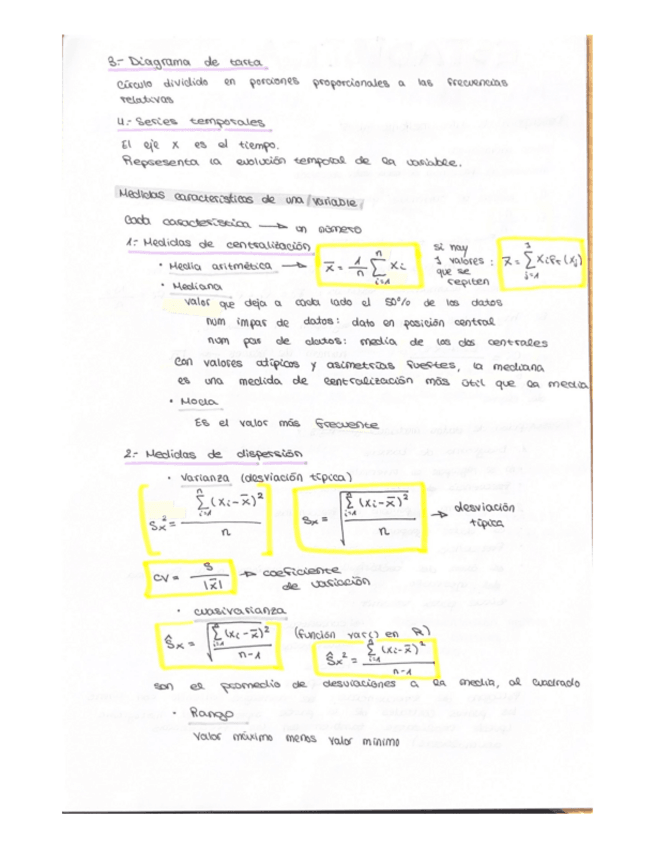 3.- Diagrama de tarta
Círculo dividido en porciones proporcionales a las frecuencias
relativas
4.- Series temporales
El eje X es el tiempo.
Representa la evolución temporal de la variable.
Medidas características de una variable
Cada característica → un número
1.- Medidas de centralización
• Media aritmética → x̄ = 1/n ∑ᵢ₌₁ⁿ xᵢ si hay J valores que se repiten : x̄ = ∑ⱼ₌₁ᴶ xⱼ fr (xⱼ)
• Mediana
valor que deja a cada lado el 50% de los datos
num impar de datos: dato en posición central
num par de datos: media de los dos centrales
Con valores atípicos y asimetrías fuertes, la mediana
es una medida de centralización más útil que la media
• Moda
Es el valor más frecuente
2.- Medidas de dispersión
• Varianza (desviación típica)
Sx² = ∑ᵢ₌₁ⁿ (xᵢ - x̄)² / n Sx = √(∑ᵢ₌₁ⁿ (xᵢ - x̄)² / n) → desviación típica
CV = S / |x̄| → coeficiente de variación
• cuasivarianza
Ŝx = √(∑ᵢ₌₁ⁿ (xᵢ - x̄)² / n-1) (función var() en R) Ŝx² = ∑ᵢ₌₁ⁿ (xᵢ - x̄)² / n-1
son el promedio de desviaciones a la media, al cuadrado
• Rango
Valor máximo menos valor mínimo